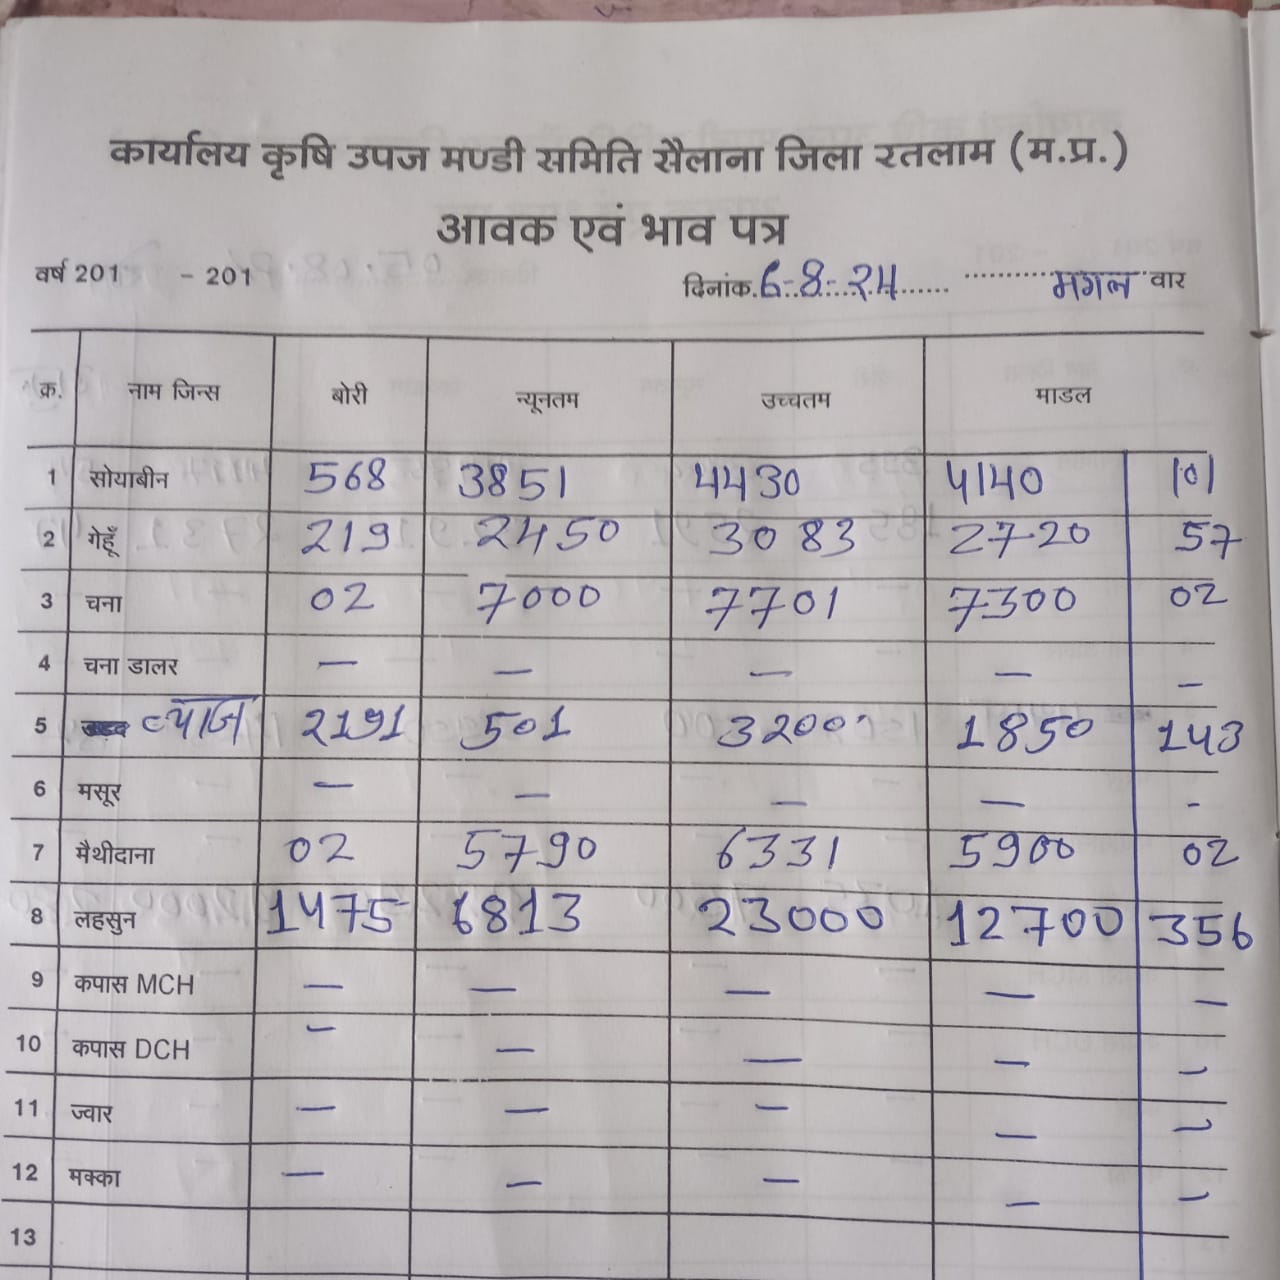 कार्यालय कृषि उपज मण्डी समिति सैलाना जिला रतलाम (म.प्र.)
आवक एवं भाव पत्र
वर्ष 201 - 201 दिनांक 6-8-24 मगल वार
क्र. नाम जिन्स बोरी न्यूनतम उच्चतम माडल
1 सोयाबीन 568 3851 4430 4140 101
2 गेहूँ 219 2450 3083 2720 57
3 चना 02 7000 7701 7300 02
4 चना डालर — — — — —
5 प्याज 2191 501 3200 1850 143
6 मसूर — — — — -
7 मैथीदाना 02 5790 6331 5900 02
8 लहसुन 1475 6813 23000 12700 356
9 कपास MCH — — — — —
10 कपास DCH — — — — —
11 ज्वार — — — — —
12 मक्का — — — — —
13